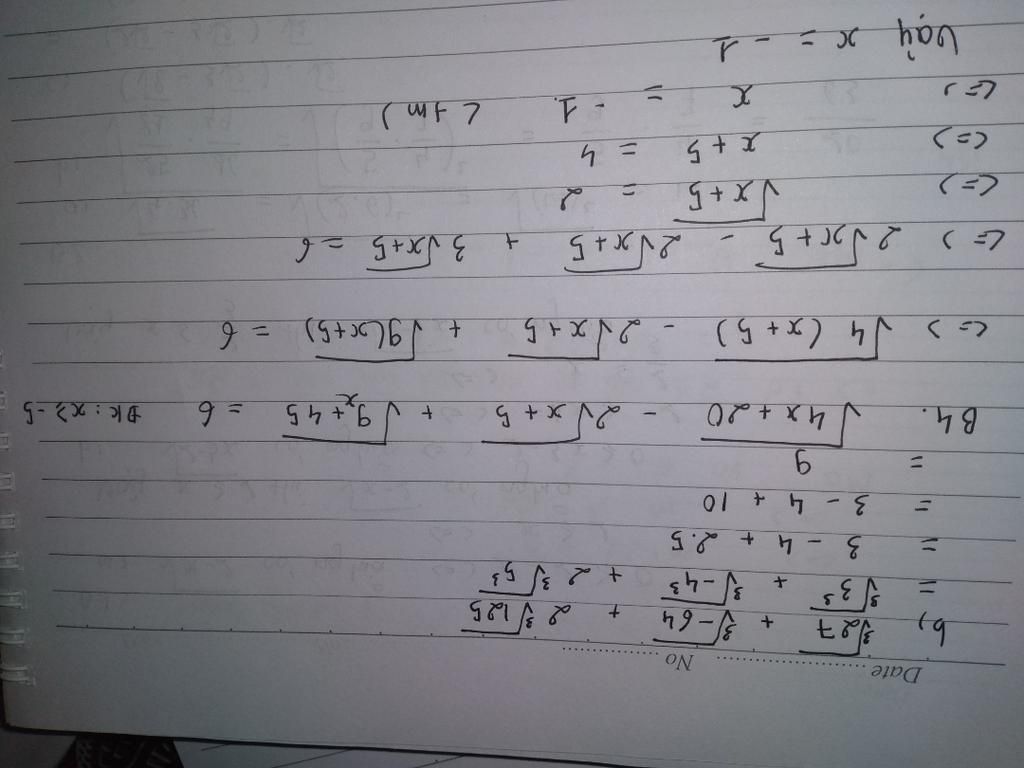 Date ............ No ............
b) ∛27 + ∛-64 + 2∛125
= ∛3³ + ∛-4³ + 2∛5³
= 3 - 4 + 2.5
= 3 - 4 + 10
= 9
B4. √4x + 20 - 2√x + 5 + √9x + 45 = 6 ĐK: x ≥ -5
<=> √4 (x + 5) - 2√x + 5 + √9(x+5) = 6
<=> 2√x + 5 - 2√x + 5 + 3√x+5 = 6
<=> √x + 5 = 2
<=> x + 5 = 4
<=> x = - 1 (tm)
Vậy x = - 1